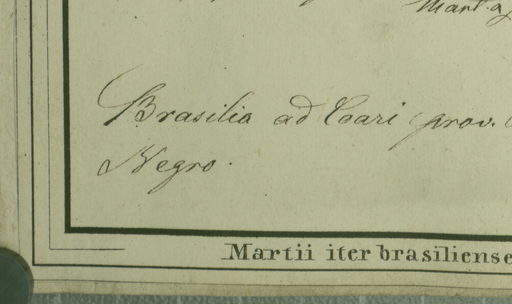 Mart.
Brasilia ad Coari prov.
Negro.
Martii iter brasiliense